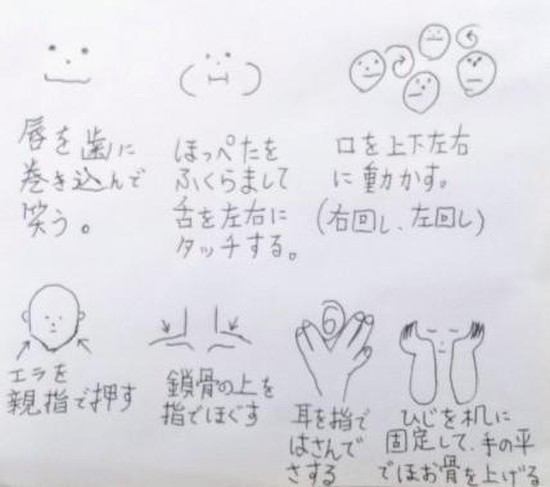 唇を歯に
巻き込んで
笑う。
ほっぺたを
ふくらまして
舌を左右に
タッチする。
口を上下左右
に動かす。
(右回し、左回し)
エラを
親指で押す
鎖骨の上を
指でほぐす
耳を指で
はさんで
さする
ひじを机に
固定して、手の平
でほお骨を上げる